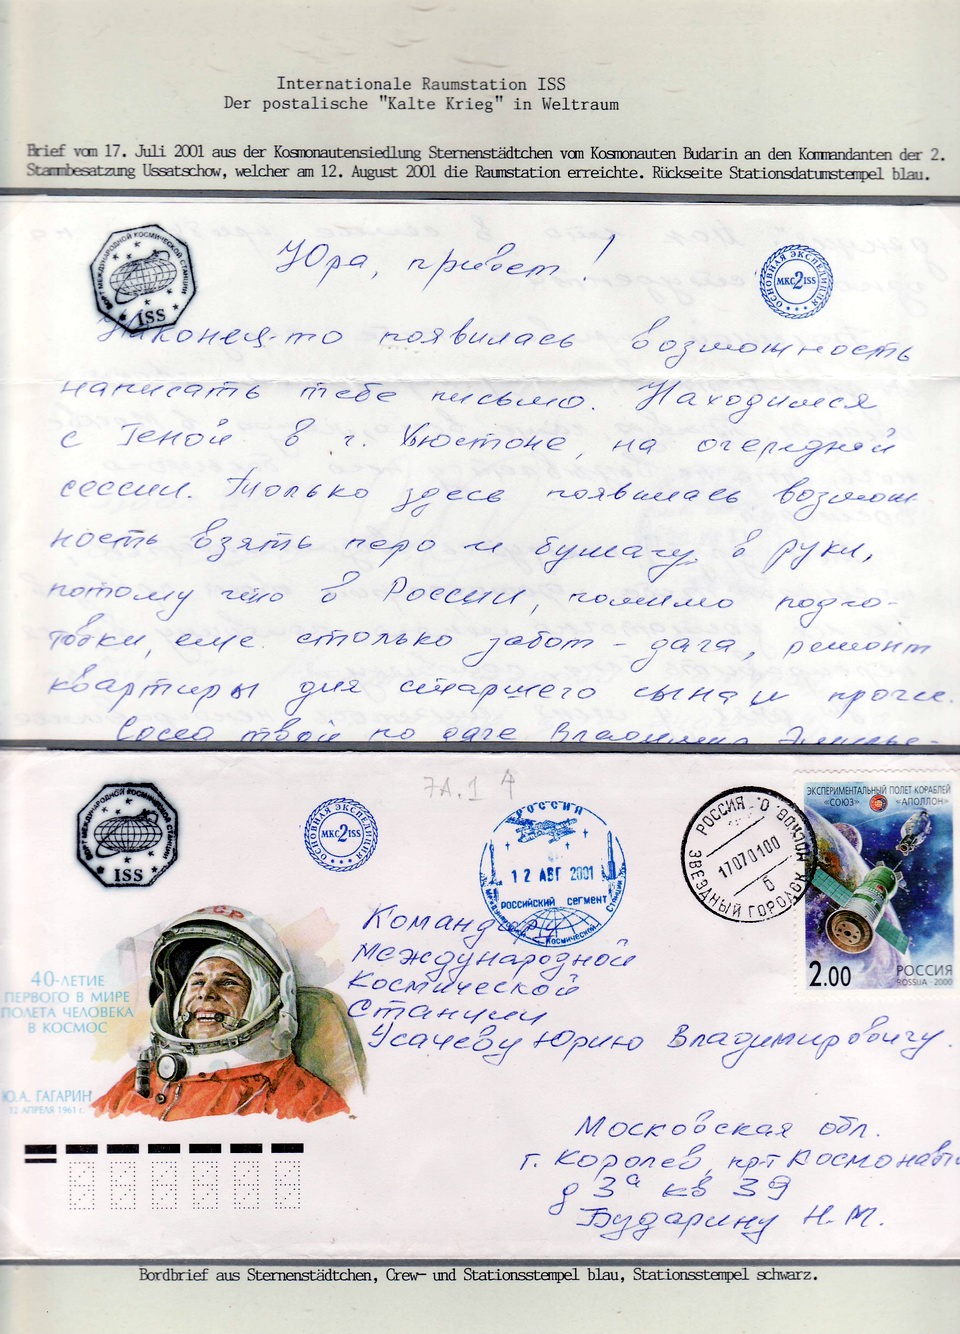 Internationale Raumstation ISS
Der postalische "Kalte Krieg" in Weltraum
Brief vom 17. Juli 2001 aus der Kosmonautensiedlung Sternenstädtchen vom Kosmonauten Budarin an den Kommandanten der 2.
Stammbesatzung Ussatschow, welcher am 12. August 2001 die Raumstation erreichte. Rückseite Stationsdatumstempel blau.
БОРТ МЕЖДУНАРОДНОЙ КОСМИЧЕСКОЙ СТАНЦИИ
ISS
ОСНОВНАЯ ЭКСПЕДИЦИЯ
МКС 2 ISS
Юра, привет!
Наконец-то появилась возможность
написать тебе письмо. Находимся
с Геной в г. Хьюстоне, на очередной
сессии. Только здесь появилась возмож
ность взять перо и бумагу в руки,
потому что в России, помимо подго-
товки, еще столько забот - дача, ремонт
квартиры для старшего сына и проч.
Сосед твой по даче Владимир
7А.1 4
БОРТ МЕЖДУНАРОДНОЙ КОСМИЧЕСКОЙ СТАНЦИИ
ISS
ОСНОВНАЯ ЭКСПЕДИЦИЯ
МКС 2 ISS
РОССИЯ
12 АВГ 2001
РОССИЙСКИЙ СЕГМЕНТ
Международной Космической Станции
РОССИЯ МОСКОВ. О.
17070100
б
ЗВЕЗДНЫЙ ГОРОДОК
ЭКСПЕРИМЕНТАЛЬНЫЙ ПОЛЕТ КОРАБЛЕЙ
«СОЮЗ» «АПОЛЛОН»
2.00
РОССИЯ
ROSSIJA 2000
СССР
40-ЛЕТИЕ
ПЕРВОГО В МИРЕ
ПОЛЕТА ЧЕЛОВЕКА
В КОСМОС
Ю.А. ГАГАРИН
12 АПРЕЛЯ 1961 г.
Командиру
Международной
Космической
Станции
Усачеву Юрию Владимировичу.
Московская обл.
г. Королев, пр-т Космонавтов
д 3а кв 39
Бударину Н. М.
Bordbrief aus Sternenstädtchen, Crew- und Stationsstempel blau, Stationsstempel schwarz.